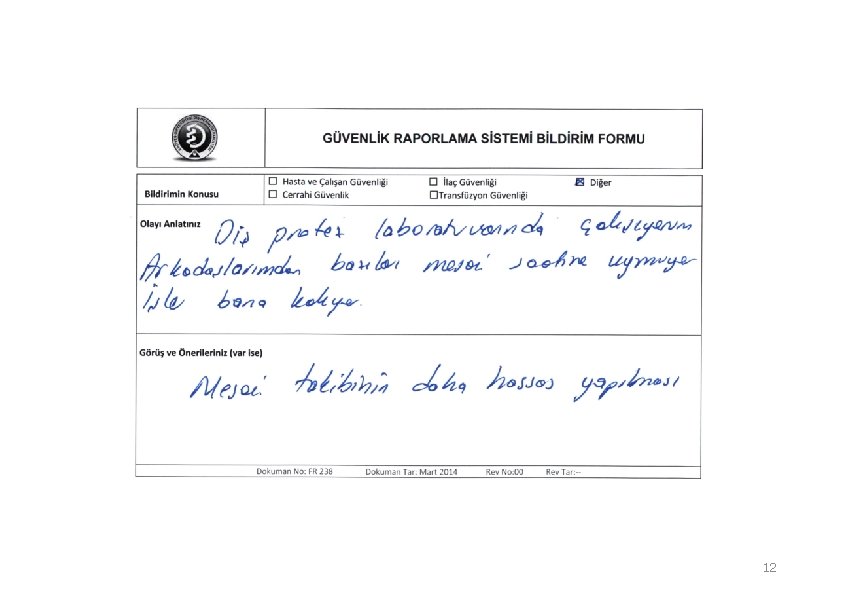 GÜVENLİK RAPORLAMA SİSTEMİ BİLDİRİM FORMU
Bildirimin Konusu
☐ Hasta ve Çalışan Güvenliği ☐ İlaç Güvenliği ☒ Diğer
☐ Cerrahi Güvenlik ☐Transfüzyon Güvenliği
Olayı Anlatınız Diş protez laboratuvarında çalışıyorum
Arkadaşlarımdan bazıları mesai saatine uymuyor
İşle bana kalıyor.
Görüş ve Önerileriniz (var ise)
Mesai takibinin daha hassas yapılması
Dokuman No: FR 238 Dokuman Tar: Mart 2014 Rev No:00 Rev Tar:--
12